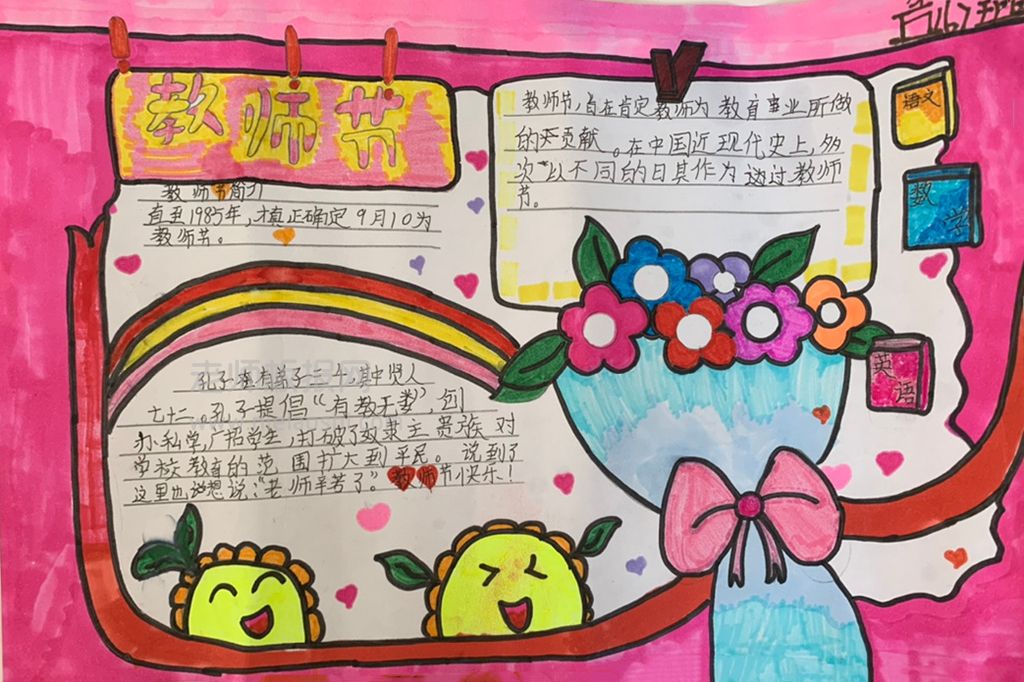 教师节
教师节简介
直丑1985年,才真正确定 9月10为
教师节。
教师节,旨在肯定教师为教育事业所做
的贡献。在中国近现代史上,多
次以不同的日其作为过教师
节。
语文
数学
英语
孔子在有弟子三千,其中贤人
七十二。孔子提倡“有教无类”,创
办私学,广招学生,打破了奴隶主贵族对
学校教育的范围扩大到平民。说到了
这里也想说:“老师辛苦了”。教师节快乐!